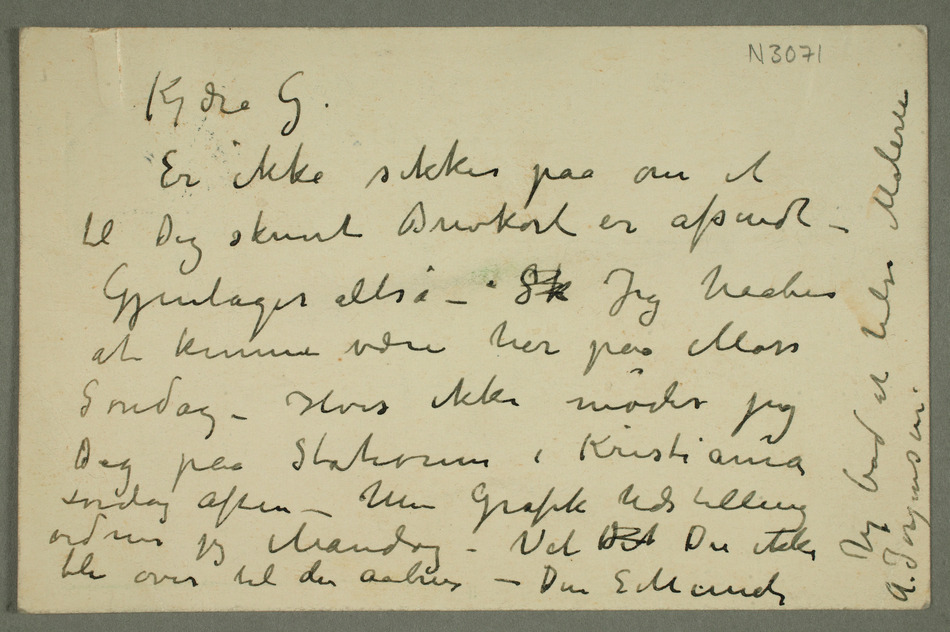 N3071
Kjære G.
Er ikke sikker paa om et
til Dig skrevet Brevkort er afsendt –
Gjentager altså – Jeg haaber
at kunne være her paa Moss
Søndag – Hvis ikke møder jeg
Dig paa Stationen i Kristiania
søndag aften – Min Grafik Udstilling
ordner jeg Mandag – Vil Du ikke
bli over til den aabnes – Din E Munch
Jeg bad at hilse Maleren
A. Jørgensen.